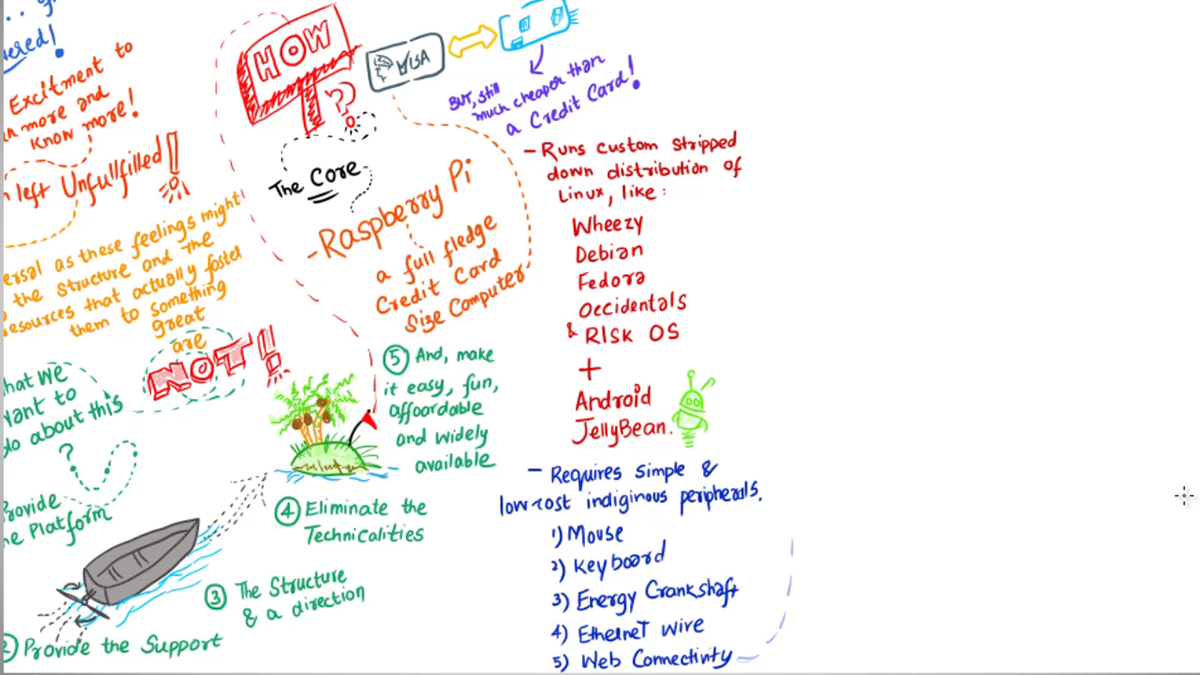 ered!
Excitment to
more and
know more!
left Unfullfilled!!
ersal as these feelings might
the structure and the
esources that actually foster
them to something
great
are
NOT!!
hat we
want to
do about this
?
Provide
the Platform
2 Provide the Support
3 The Structure
& a direction
4 Eliminate the
Technicalities
5 And, make
it easy, fun,
affoardable
and widely
available
HOW
??
The Core
VISA
BUT, still
much cheaper than
a Credit Card!
-Raspberry Pi
a full fledge
Credit Card
Size Computer
- Runs custom stripped
down distribution of
Linux, like:
Wheezy
Debian
Fedora
Occidentals
& RISK OS
+
Android
JellyBean.
- Requires simple &
low-cost indiginous peripherals.
1) Mouse
2) Keyboard
3) Energy Crankshaft
4) Ethernet wire
5) Web Connectivity